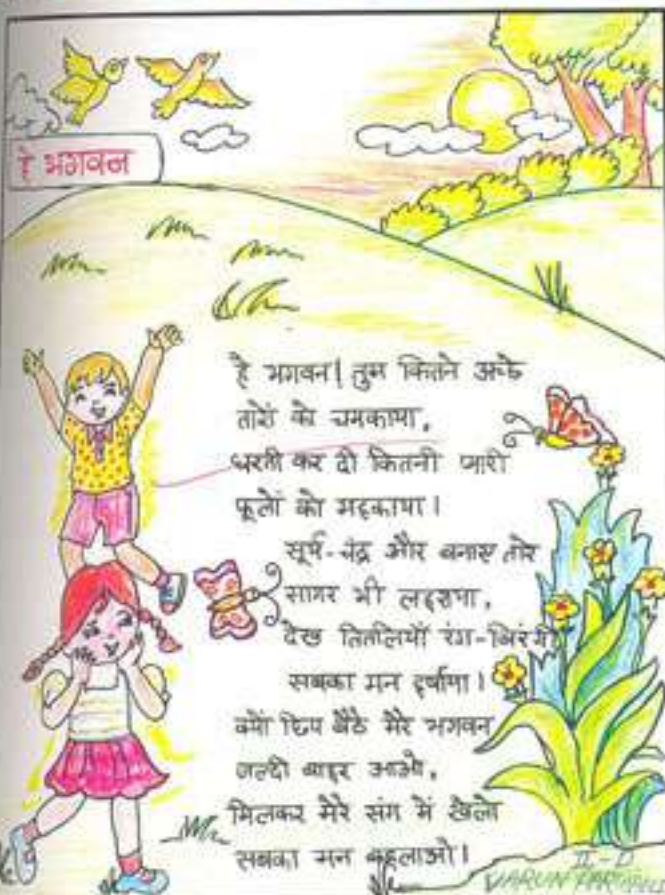 हे भगवन
हे भगवन! तुम कितने अच्छे
तारों को चमकाया,
धरती कर दी कितनी प्यारी
फूलों को महकाया।
सूर्य-चंद्र और बनाए तारे
सागर भी लहराया,
देख तितलियाँ रंग-बिरंगी
सबका मन हर्षाया।
क्यों छिप बैठे मेरे भगवन
जल्दी बाहर आओ,
मिलकर मेरे संग में खेलो
सबका मन बहलाओ।
II-D
VARUN